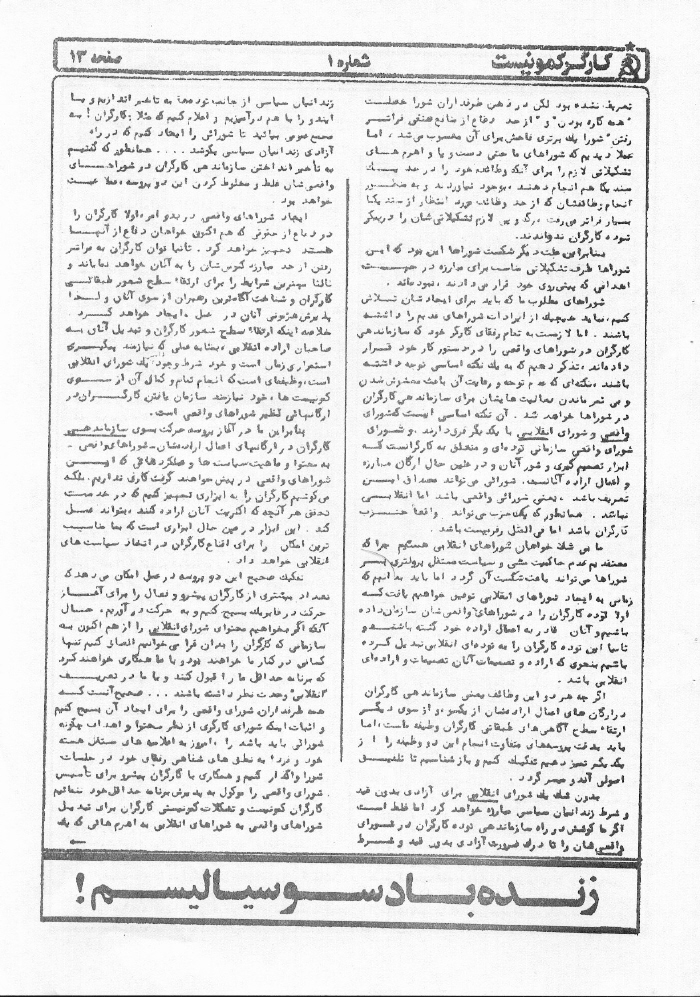 کارگر کمونیست
شماره ۱
صفحه ۱۳
تعریف نشده بود لکن در ذهن طرفداران شورا خصلت
"همه کاره بودن" و "از حد دفاع از منافع صنفی فراتر
رفتن" شورا یک برتری فاحش برای آن محسوب می‌شد، اما
عملا دیدیم که شوراهای ما حتی دست و پا و اهرم های
تشکیلاتی لازم را برای آنکه وظائف خود را در حد یک
سندیکا هم انجام دهند، بوجود نیاوردند و به منظور
انجام وظائفشان که از حد وظائف مورد انتظار از سندیکا
بسیار فراتر می‌رفت، رگ و پی لازم تشکیلاتی شان را در دیگر
توده کارگران ندواندند.
بنابراین علت دیگر شکست شوراها این بود که این
شوراها ظرف تشکیلاتی مناسب برای مبارزه در جهت
اهدافی که پیش روی خود قرار می‌دادند، نبوده‌اند.
شوراهای مطلوب ما که باید برای ایجادشان تلاش
کنیم، نباید هیچیک از ایرادات شوراهای قدیم را داشته
باشند. اما لازمست به تمام رفقای کارگر خود که سازماندهی
کارگران در شوراهای واقعی را در دستور کار خود قرار
داده‌اند، تذکر دهیم که به یک نکته اساسی توجه داشته
باشند، نکته‌ای که عدم توجه و رعایت آن باعث مغشوش شدن
و بی ثمر ماندن فعالیت هایشان برای سازماندهی کارگران
در شوراها خواهد شد. آن نکته اساسی اینست که شورای
واقعی و شورای انقلابی با یکدیگر فرق دارند. و شورای
واقعی سازمانی توده‌ای و متعلق به کارگرانست که
ابزار تصمیم گیری و شور آنان و در عین حال ارگان مبارزه
و اعمال اراده آنانست. شورائی می‌تواند مصداق این
تعریف باشد، یعنی شورائی واقعی باشد اما انقلابی
نباشد. همانطور که یک حزب می‌تواند واقعا حزب
کارگران باشد اما فی‌المثل رفرمیست باشد.
ما بی شک خواهان شوراهای انقلابی هستیم چرا که
معتقدیم عدم حاکمیت مشی و سیاست مستقل پرولتری بر
شوراها می‌تواند باعث شکست آن گردد اما باید بدانیم که
زمانی به ایجاد شوراهای انقلابی توفیق خواهیم یافت که
اولا توده کارگران را در شوراهای واقعی شان سازمان داده
باشیم و آنان قادر به اعمال اراده خود گشته باشند و
ثانیا این توده کارگران را به توده‌ای انقلابی تبدیل کرده
باشیم بنحوی که اراده و تصمیمات آنان، تصمیمات و اراده‌ای
انقلابی باشد.
اگر چه هر دو این وظائف یعنی سازماندهی کارگران
در ارگان های اعمال اراده‌شان از یکسو، و از سوی دیگر
ارتقاء سطح آگاهی های طبقاتی کارگران وظیفه ماست، اما
باید بدقت پروسه‌های متفاوت انجام این دو وظیفه را از
یکدیگر تمیز دهیم تفکیک کنیم و بازشناسیم تا تلفیق
اصولی آندو میسر گردد.
بدون شک یک شورای انقلابی برای آزادی بدون قید
و شرط زندانیان سیاسی مبارزه خواهد کرد اما غلط است
اگر ما کوشش در راه سازماندهی توده کارگران در شورای
واقعی شان را تا درک ضرورت آزادی بدون قید و شرط
زندانیان سیاسی از جانب توده‌ها به تاخیر اندازیم و یا
ایندو را با هم درآمیزیم و اعلام کنیم که مثلا: کارگران! به
مجمع عمومی بیائید تا شورائی را ایجاد کنیم که در راه
آزادی زندانیان سیاسی بکوشد.... همانطور که گفتیم
به تأخیر انداختن سازماندهی کارگران در شوراهای
واقعی شان غلط و مخلوط کردن این دو پروسه، عملا عبث
خواهد بود.
ایجاد شوراهای واقعی در بدو امر، اولا کارگران را
در دفاع از حقوقی که هم اکنون خواهان دفاع از آنها
هستند تجهیز خواهد کرد. ثانیا توان کارگران به فراتر
رفتن از حد مبارزه کنونی شان را به آنان خواهد نمایاند و
ثالثا بهترین شرایط را برای ارتقاء سطح شعور طبقاتی
کارگران و شناخت آگاه‌ترین رهبران از سوی آنان و لذا
پذیرش هژمونی آنان در عمل، ایجاد خواهد کرد.
خلاصه اینکه ارتقاء سطح شعور کارگران و تبدیل آنان به
صاحبان اراده انقلابی، بمثابه عملی که نیازمند پیگیری
استمراری زمان است و خود شرط وجود یک شورای انقلابی
است، وظیفه‌ای است که انجام تمام و کمال آن از سوی
کمونیست ها، خود نیازمند سازمان یافتن کارگران در
ارگانهائی نظیر شوراهای واقعی است.
بنابراین ما در آغاز پروسه حرکت بسوی سازماندهی
کارگران در ارگانهای اعمال اراده‌شان -شوراهای واقعی-
به محتوا و ماهیت سیاست ها و عملکردهائی که این
شوراهای واقعی در پیش خواهند گرفت کاری نداریم. بلکه
می‌کوشیم کارگران را به ابزاری تجهیز کنیم که در خدمت
تحقق هر آنچه که اکثریت آنان اراده کنند، بتواند عمل
کند. این ابزار در عین حال ابزاری است که بما مناسب
ترین امکان را برای اقناع کارگران در اتخاذ سیاست های
انقلابی خواهد داد.
تفکیک صحیح این دو پروسه در عمل امکان می‌دهد که
تعداد بیشتری از کارگران پیشرو و فعال را برای آغاز
حرکت در فابریک بسیج کنیم و به حرکت درآوریم. حال
آنکه اگر بخواهیم محتوای شورای انقلابی را از هم اکنون به
سازمانی که کارگران را بدان فرا می‌خوانیم الصاق کنیم تنها
کسانی در کنار ما خواهند بود و با ما همکاری خواهند کرد
که برنامه حداقل ما را قبول کنند و یا ما در تعریف
"انقلابی" وحدت نظر داشته باشند.... صحیح آنست که
همه طرفداران شورای واقعی را برای ایجاد آن بسیج کنیم
و اثبات اینکه شورای کارگری از نظر محتوا و اهداف چگونه
شورائی باید باشد را، امروز به اعلامیه های مستقل هسته
خود و فردا به نطق های شفاهی رفقای خود در جلسات
شورا واگذار کنیم و همکاری با کارگران پیشرو برای تأسیس
شورای واقعی را موکول به پذیرش برنامه حداقل خود ننمائیم
کارگران کمونیست و تشکلات کمونیستی کارگران برای تبدیل
شوراهای واقعی به شوراهای انقلابی به اهرم هائی که یک
زنده باد سوسیالیسم!